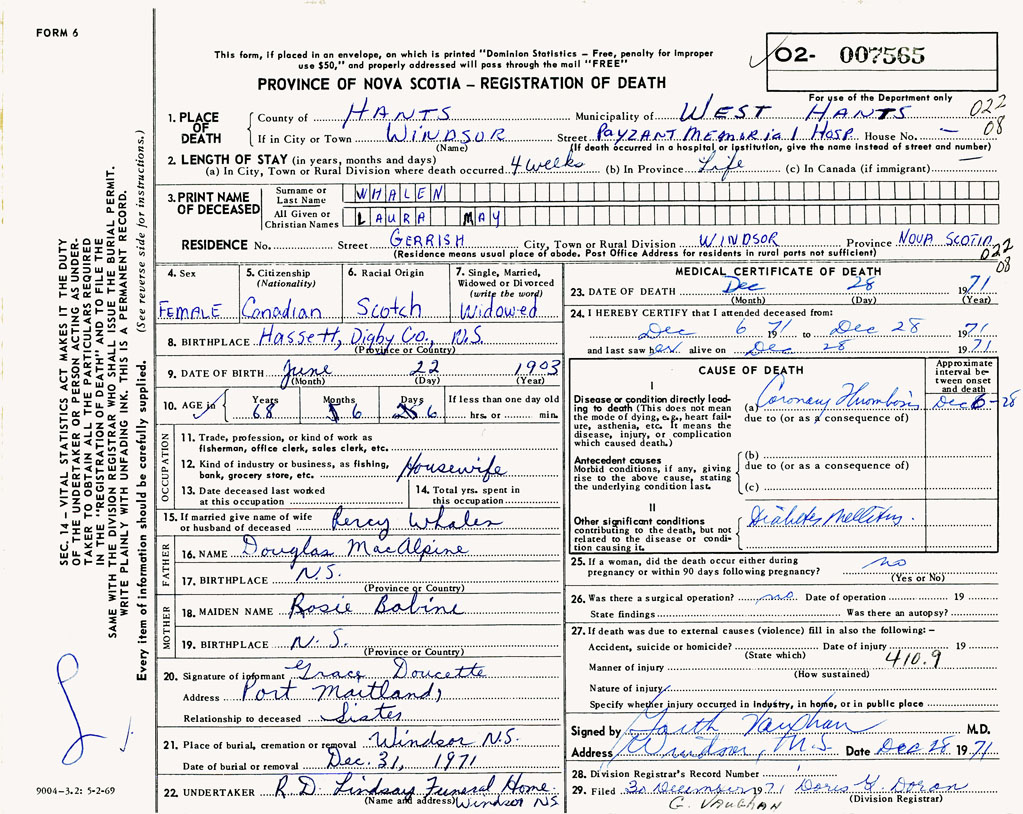 FORM 6
This form, if placed in an envelope, on which is printed "Dominion Statistics – Free, penalty for improper
use $50," and properly addressed will pass through the mail "FREE"
PROVINCE OF NOVA SCOTIA – REGISTRATION OF DEATH
02- 007565
For use of the Department only
022
08
1. PLACE OF DEATH
County of HANTS Municipality of WEST HANTS
If in City or Town WINDSOR Street PAYZANT MEMORIAL HOSP. House No. –
(Name) (If death occurred in a hospital or institution, give the name instead of street and number)
2. LENGTH OF STAY (in years, months and days)
(a) In City, Town or Rural Division where death occurred 4 weeks (b) In Province Life (c) In Canada (if immigrant) –
3. PRINT NAME OF DECEASED
Surname or Last Name WHALEN
All Given or Christian Names LAURA MAY
RESIDENCE No. Street GERRISH City, Town or Rural Division WINDSOR Province NOVA SCOTIA
(Residence means usual place of abode. Post Office Address for residents in rural parts not sufficient)
022
08
4. Sex FEMALE
5. Citizenship (Nationality) Canadian
6. Racial Origin Scotch
7. Single, Married, Widowed or Divorced (write the word) Widowed
8. BIRTHPLACE Hassett, Digby Co., N.S.
(Province or Country)
9. DATE OF BIRTH June 22 1903
(Month) (Day) (Year)
10. AGE in Years 68 Months 6 Days 6 If less than one day old hrs. or min.
OCCUPATION
11. Trade, profession, or kind of work as
fisherman, office clerk, sales clerk, etc.
12. Kind of industry or business, as fishing,
bank, grocery store, etc. Housewife
13. Date deceased last worked
at this occupation
14. Total yrs. spent in
this occupation
15. If married give name of wife
or husband of deceased Percy Whalen
FATHER
16. NAME Douglas MacAlpine
17. BIRTHPLACE N.S.
(Province or Country)
MOTHER
18. MAIDEN NAME Rosie Babine
19. BIRTHPLACE N.S.
(Province or Country)
20. Signature of informant Grace Doucette
Address Port Maitland,
Relationship to deceased Sister
21. Place of burial, cremation or removal Windsor N.S.
Date of burial or removal Dec. 31, 1971
22. UNDERTAKER R.D. Lindsay Funeral Home
(Name and address) Windsor N.S.
MEDICAL CERTIFICATE OF DEATH
23. DATE OF DEATH Dec 28 1971
(Month) (Day) (Year)
24. I HEREBY CERTIFY that I attended deceased from:
Dec 6 71 to Dec 28 1971
and last saw her alive on Dec 28 1971
CAUSE OF DEATH
Approximate interval between onset and death
I
Disease or condition directly leading
to death (This does not mean
the mode of dying, e.g., heart failure,
asthenia, etc. It means the
disease, injury, or complication
which caused death.)
(a) Coronary Thrombosis Dec 6-28
due to (or as a consequence of)
Antecedent causes
Morbid conditions, if any, giving
rise to the above cause, stating
the underlying condition last.
(b)
due to (or as a consequence of)
(c)
II
Other significant conditions
contributing to the death, but not
related to the disease or condition
causing it.
Diabetes Mellitus.
25. If a woman, did the death occur either during
pregnancy or within 90 days following pregnancy? no
(Yes or No)
26. Was there a surgical operation? no Date of operation 19
State findings Was there an autopsy?
27. If death was due to external causes (violence) fill in also the following: –
Accident, suicide or homicide? Date of injury 19
(State which) 410.9
Manner of injury
(How sustained)
Nature of injury
Specify whether injury occurred in Industry, in home, or in public place
Signed by Garth Vaughan M.D.
Address Windsor, N.S. Date Dec 28 1971
28. Division Registrar's Record Number
29. Filed 30 December 1971 Doris K. Doran
G. VAUGHAN (Division Registrar)
SEC. 14 – VITAL STATISTICS ACT MAKES IT THE DUTY
OF THE UNDERTAKER OR PERSON ACTING AS UNDERTAKER
TO OBTAIN ALL THE PARTICULARS REQUIRED
IN THE "REGISTRATION OF DEATH" AND TO FILE THE
SAME WITH THE DIVISION REGISTRAR WHO SHALL ISSUE THE BURIAL PERMIT.
WRITE PLAINLY WITH UNFADING INK. THIS IS A PERMANENT RECORD.
Every item of information should be carefully supplied. (See reverse side for instructions.)
9004-3.2: 5-2-69